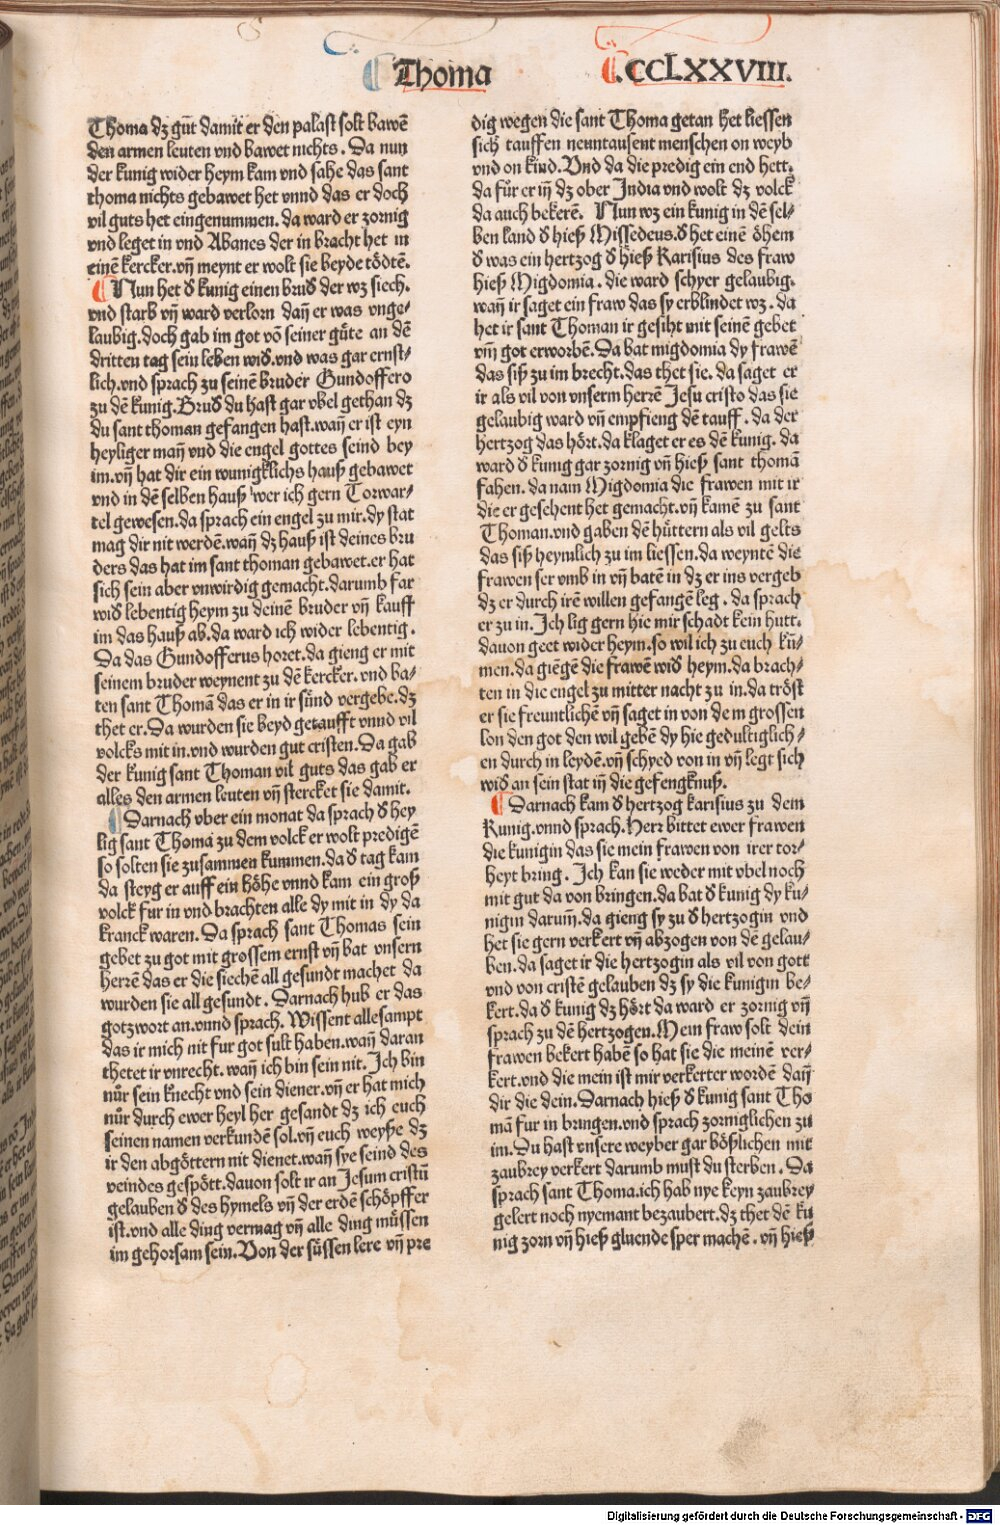 Thoma
.CCLXXVIII.
Thoma dz gůt damit er den palast solt bawē
den armen leuten vnd bawet nichts. Da nun
der kunig wider heym kam vnd sahe das sant
thoma nichts gebawet het vnnd das er doch
vil guts het eingenummen. da ward er zornig
vnd leget in vnd Abanes der in bracht het in
einē kercker. vñ meynt er wolt sie beyde tödtē.
Nun het đ kunig einen bruđ der wz siech.
vnd starb vñ ward verlorn dañ er was vnge⸗
laubig. doch gab im got vō seiner gůte an dē
dritten tag sein leben wiđ. vnd was gar ernst⸗
lich. vnd sprach zu seinē bruder Gundoffero
zu dē kunig. Bruđ du hast gar vbel gethan dz
du sant thoman gefangen hast. wañ er ist eyn
heyliger mañ vnd die engel gottes seind bey
im. vñ hat dir ein wunigklichs hauß gebawet
vnd in dē selben hauß wer ich gern Torwar⸗
tel gewesen. da sprach ein engel zu mir. dy stat
mag dir nit werdē. wañ dz hauß ist deines bru
ders das hat im sant thoman gebawet. er hat
sich sein aber vnwirdig gemacht. darumb far
wiđ lebentig heym zu deinē bruder vñ kauff
im das hauß ab. da ward ich wider lebentig.
Da das Gundofferus horet. da gieng er mit
seinem bruder weynent zu dē kercker. vnd ba⸗
ten sant Thomā das er in ir sünd vergebe. dz
thet er. Da wurden sie beyd getaufft vnnd vil
volcks mit in. vnd wurden gut cristen. Da gab
der kunig sant Thoman vil guts das gab er
alles den armen leuten vñ stercket sie damit.
Darnach vber ein monat da sprach đ hey
lig sant Thoma zu dem volck er wolt predigē
so solten sie zusammen kummen. da đ tag kam
da steyg er auff ein höhe vnnd kam ein groß
volck fur in vnd brachten alle dy mit in dy da
kranck waren. Da sprach sant Thomas sein
gebet zu got mit grossem ernst vñ bat vnsern
herrē das er die siechē all gesundt machet da
wurden sie all gesundt. Darnach hub er das
gotzwort an. vnnd sprach. Wissent allesampt
das ir mich nit fur got sult haben. wañ daran
thetet ir vnrecht. wañ ich bin sein nit. Ich bin
nůr sein knecht vnd sein diener. vñ er hat mich
nůr durch ewer heyl her gesandt dz ich euch
seinen namen verkundē sol. vñ euch weyße dz
ir den abgöttern nit dienet. wañ sye seind des
veindes gespött. dauon solt ir an Jesum cristū
gelauben đ des hymels vñ der erdē schöpffer
ist. vnd alle ding vermag vñ alle ding müssen
im gehorsam sein. Von der süssen lere vñ pre
dig wegen die sant Thoma getan het liessen
sich tauffen neuntausent menschen on weyb
vnd on kind. Vnd da die predig ein end hett.
da fůr er in̄ dz ober India vnd wolt dz volck
da auch bekerē. Nun wz ein kunig in dē sel⸗
ben land đ hieß Missedeus. đ het einē öhem
đ was ein hertzog đ hieß Karisius des fraw
hieß Migdomia. die ward schyer gelaubig.
wañ ir saget ein fraw das sy erblindet wz. da
het ir sant Thoman ir gesiht mit seinē gebet
vm̄ got erworbē. Da bat migdomia dy frawē
das siß zu im brecht. das thet sie. da saget er
ir als vil von vnserm herrē Jesu cristo das sie
gelaubig ward vñ empfieng dē tauff. da der
hertzog das hört. da klaget er es dē kunig. da
ward đ kunig gar zornig vñ hieß sant thomā
fahen. da nam Migdomia die frawen mit ir
die er gesehent het gemacht. vñ kamē zu sant
Thoman. vnd gaben dē hüttern als vil gelts
das siß heymlich zu im liessen. da weyntē die
frawen ser vmb in vñ batē in dz er ins vergeb
dz er durch irē willen gefangē leg. da sprach
er zu in. Ich lig gern hie mir schadt kein hutt.
dauon geet wider heym. so wil ich zu euch kū⸗
men. da giēgē die frawē wiđ heym. da brach⸗
ten in die engel zu mitter nacht zu in. da tröst
er sie freuntlichē vñ saget in von dem grossen
lon den got den wil gebē dy hie gedultiglich⸗
en durch in leydē. vñ schyed von in vñ legt sich
wiđ an sein stat in̄ die gefengknuß.
Darnach kam đ hertzog karisius zu dem
Kunig. vnnd sprach. Herr bittet ewer frawen
die kunigin das sie mein frawen von irer tor⸗
heyt bring. Ich kan sie weder mit vbel noch
mit gut da von bringen. da bat đ kunig dy ku⸗
nigin darum̄. da gieng sy zu đ hertzogin vnd
het sie gern verkert vñ abzogen von dē gelau⸗
ben. da saget ir die hertzogin als vil von gott
vnd von cristē gelauben dz sy die kunigin be⸗
kert. da đ kunig dz hört da ward er zornig vñ
sprach zu dē hertzogen. Mein fraw solt dein
frawen bekert habē so hat sie die meinē ver⸗
kert. vnd die mein ist mir verkerter wordē dañ
dir die dein. Darnach hieß đ kunig sant Tho
mā fur in bringen. vnd sprach zorniglichen zu
im. Du hast vnsere weyber gar bößlichen mit
zaubrey verkert darumb must du sterben. Da
sprach sant Thoma. ich hab nye keyn zaubrey
gelert noch nyemant bezaubert. dz thet dē ku
nig zorn vñ hieß gluende sper machē. vñ hieß
Digitalisierung gefördert durch die Deutsche Forschungsgemeinschaft - DFG